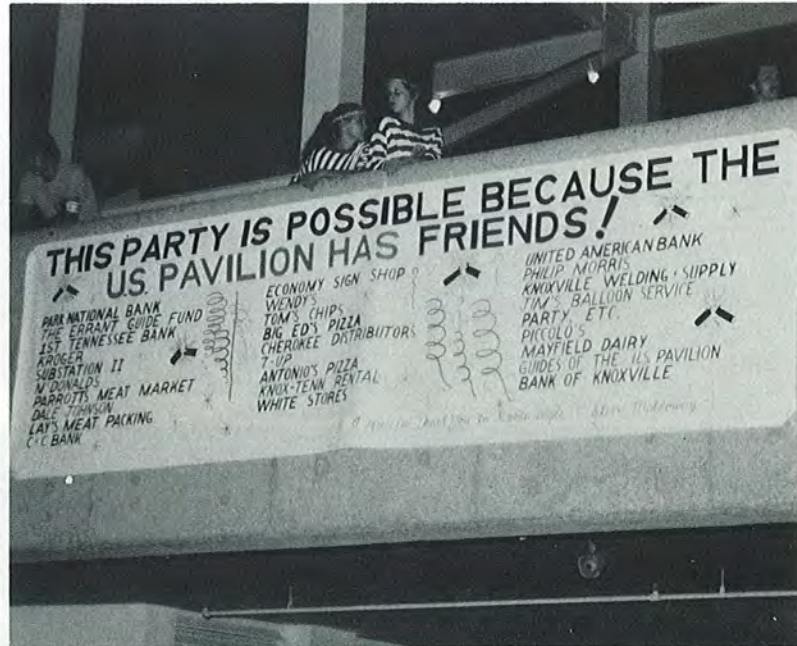 THIS PARTY IS POSSIBLE BECAUSE THE
U.S. PAVILION HAS FRIENDS!
PARK NATIONAL BANK
THE ERRANT GUIDE FUND
1ST TENNESSEE BANK
KROGER
SUBSTATION II
McDONALDS
PARROTTS MEAT MARKET
DALE JOHNSON
LAY'S MEAT PACKING
C+C BANK
ECONOMY SIGN SHOP
WENDY'S
TOM'S CHIPS
BIG ED'S PIZZA
CHEROKEE DISTRIBUTORS
7-UP
ANTONIO'S PIZZA
KNOX-TENN RENTAL
WHITE STORES
UNITED AMERICAN BANK
PHILIP MORRIS
KNOXVILLE WELDING SUPPLY
TIM'S BALLOON SERVICE
PARTY, ETC.
PICCOLO'S
MAYFIELD DAIRY
GUIDES OF THE U.S. PAVILION
BANK OF KNOXVILLE